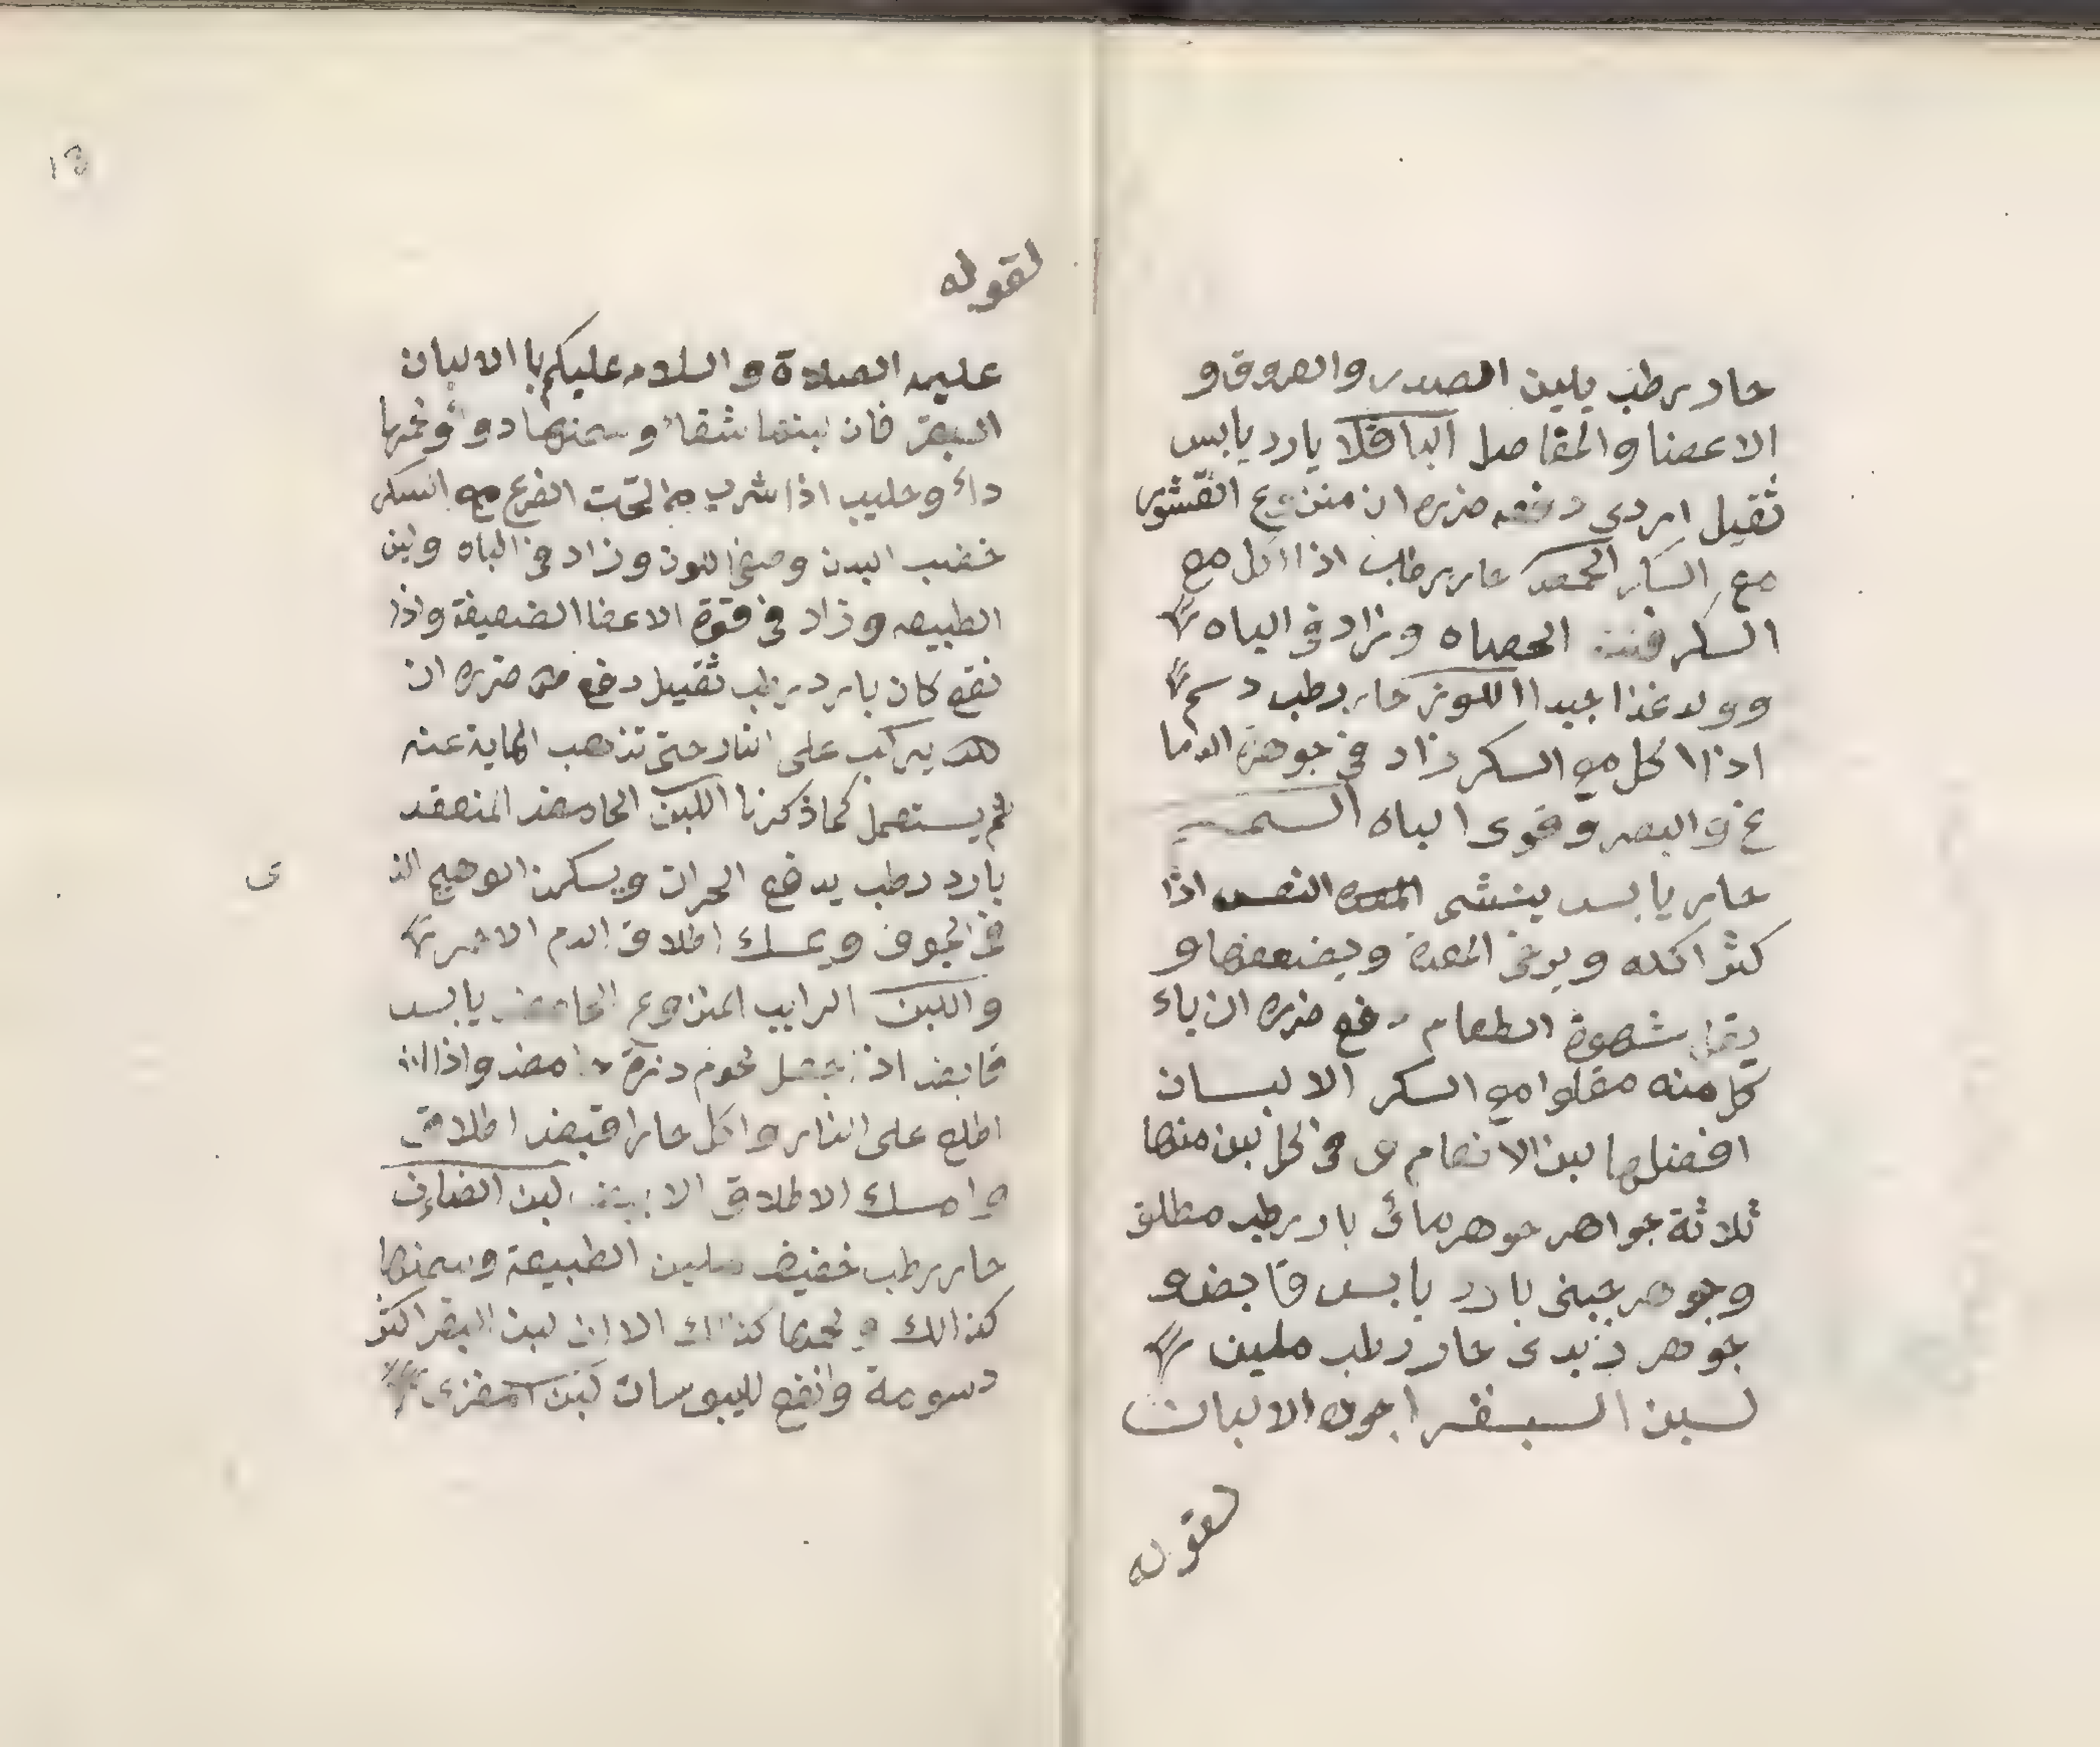 حار رطب يلين الصدر والعروق و
الاعضا والمفاصل الباقلا بارد يابس
ثقيل اردي دفعه ضرره ان منزوع القشور
مع السكر الحمص حار رطب اذا اكل مع
السكر فتت الحصاه وزاد في الباه
وولد غذا جيدا اللوز حار رطب دسم
اذا اكل مع السكر زاد في جوهرة الدما
غ والبصر وقوى الباه السمسم
حار يابس ينشى النفس اذا
كثر اكله ويرخى المعدة ويضعفها و
يقل شهوة الطعام دفع ضرره ان ياء
كل منه مقلوا مع السكر الالبان
افضلها لبن الانعام وفي الحل لبن منها
ثلاثة جواهر جوهر مائ بارد رطب مطلق
وجوهر جبنى بارد يابس قابض و
جوهر زبدى حار رطب ملين
لبن البقر اجود الالبان
لقوله
١٣
لقوله
عليه الصلاة والسلام عليكم با الالبان
البقر فان لبنها شفاء وسمنها دواء ولحمها
داء وحليب اذا شرب من تحت الضرع مع السكر
خصب البدن وصفى اللون وزاد في الباه ولين
الطبيعه وزاد في قوة الاعضا الضعيفة واذا
نقع كان بارد رطب ثقيل دفع ضرره ان
يركب على النار حتى تذهب المايه عنه
ثم يستعمل كما ذكرنا اللبن الحامض المنعقد
بارد رطب يدفع الحرات ويسكن الوهيج الذ
ى
في الجوف ويمسك اطلاق الدم الاحمر
واللبن الرايب المنزوع الحامض يابس
قابض اذا جعل دره حامض واذا
اطلع على النار واكل حارا قبض اطلاق
وامسك الاطلاق الابيض لبن الضاءن
حار رطب خفيف ملين الطبيعة وسمنها
كذالك ولحمها كذالك الا ان لبن البقر اكثر
دسومة وانفع لليبوسات لبن المعزى